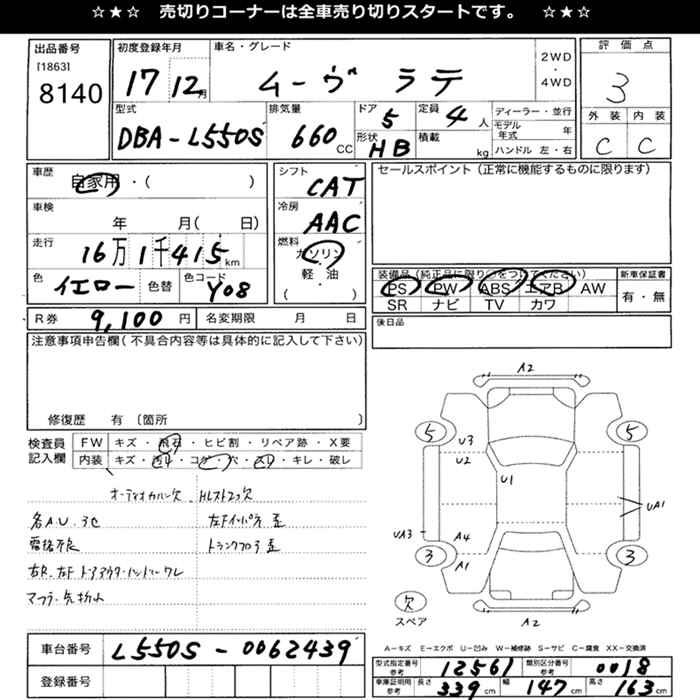 ☆★☆ 売切りコーナーは全車売り切りスタートです。 ☆★☆
出品番号
[1863]
8140
初度登録年月
17 12月
車名・グレード
ムーヴ ラテ
2WD
・
4WD
評価点
3
外装 内装
C C
型式
DBA-L550S
排気量
660 CC
ドア 5
形状 HB
定員 4 人
積載 kg
ディーラー・並行
モデル年式 年
ハンドル 左・右
車歴
自家用・( )
車検
年 月( 日)
走行
16万1千415km
色 イエロー 色替
色コード Y08
シフト
CAT
冷房
AAC
燃料
ガソリン
軽・油
( )
セールスポイント(正常に機能するものに限ります)
装備品(純正品に限り○をつけてください)
PS PW ABS エアB AW
SR ナビ TV カワ
新車保証書
有・無
R券 9,100 円
名変期限 月 日
後日品
注意事項申告欄(不具合内容等は具体的に記入して下さい)
修復歴 有〔箇所 〕
検査員
記入欄
FW キズ・飛石・ヒビ割・リペア跡・X要
内装 キズ・汚れ・コゲ・穴・スレ・キレ・破レ
オーディオカバー欠 HLスト2ヶ欠
各A.U.3C 左Fインパネ歪
電格不良 トランクフロア歪
右R、左F ドアアウターハンドルワレ
A2
5 5
U3
U2
U1
UA1
UA3
A4
3 3
A1
欠
スペア
A2
A−キズ E−エクボ U−凹み W−補修跡 S−サビ C−腐食 XX−交換済
車台番号 L550S-0062439
登録番号
型式指定番号
参考
12561
類別区分番号
参考
0018
車庫証明用
参考
長さ 339 cm
幅 147 cm
高さ 163 cm